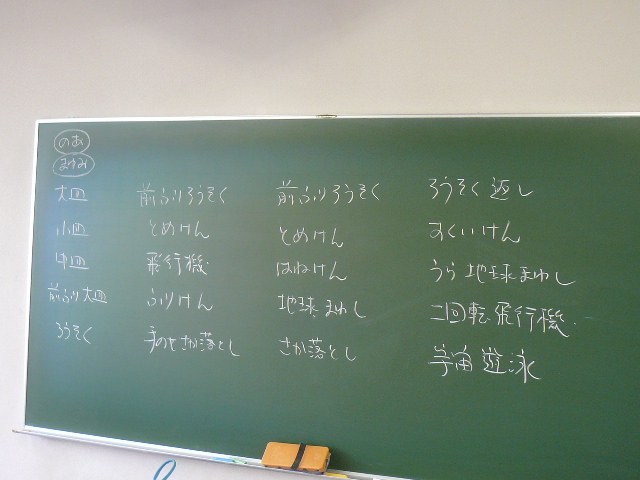 のあ
まゆみ
大皿
小皿
中皿
前ふり大皿
ろうそく
前ふりろうそく
とめけん
飛行機
ふりけん
手のせさか落とし
前ふりろうそく
とめけん
はねけん
地球まわし
さか落とし
ろうそく返し
すくいけん
うら地球まわし
二回転飛行機
宇宙遊泳